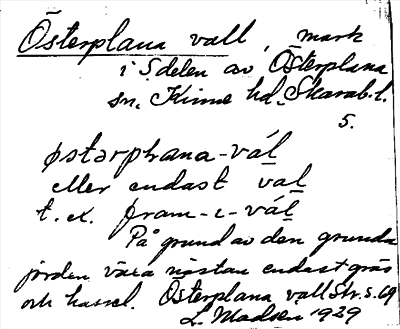 Österplana vall, mark
i S. delen av Österplana
sn, Kinne hd, Skarab. l.
5.
østərplana-vál
eller endast val
t. ex. fram-ı-vál
På grund av den grunda
jorden växa nästan endast gräs
och hassel. Österplana vall Str. s. 69
L. Madsen 1929